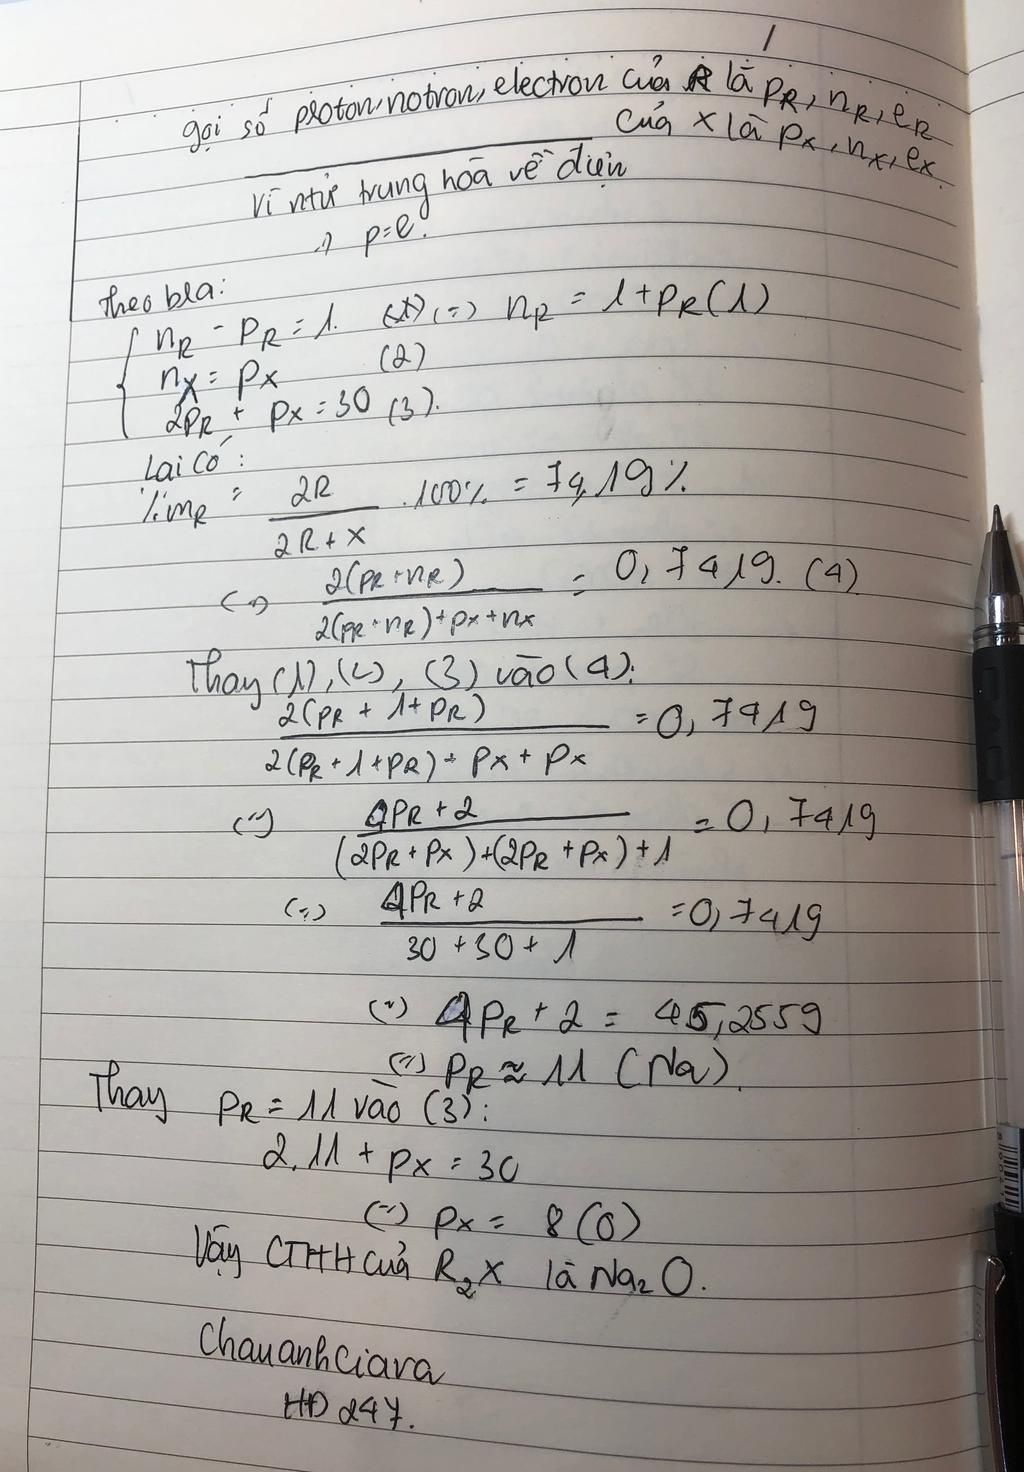 1
gọi số proton, notron, electron của R là pR, nR, eR
của X là pX, nX, eX.
Vì ntử trung hoà về điện
=> p=e.
Theo bra:
nR - pR = 1. (=) nR = 1 + pR (1)
nX = pX (2)
2pR + pX = 30 (3).
Lại có:
%mR = 2R / 2R + X . 100% = 74,19%
(=) 2(pR + nR) / 2(pR + nR) + pX + nX = 0,7419. (4)
Thay (1), (2), (3) vào (4):
2(pR + 1 + pR) / 2(pR + 1 + pR) + pX + pX = 0,7419
(=) 4pR + 2 / (2pR + pX) + (2pR + pX) + 1 = 0,7419
(=) 4pR + 2 / 30 + 30 + 1 = 0,7419
(=) 4pR + 2 = 45,2559
(=) pR ≈ 11 (Na).
Thay pR = 11 vào (3):
2.11 + pX = 30
(=) pX = 8 (O)
Vậy CTHH của R2X là Na2O.
Chauanhciara
HD 247.